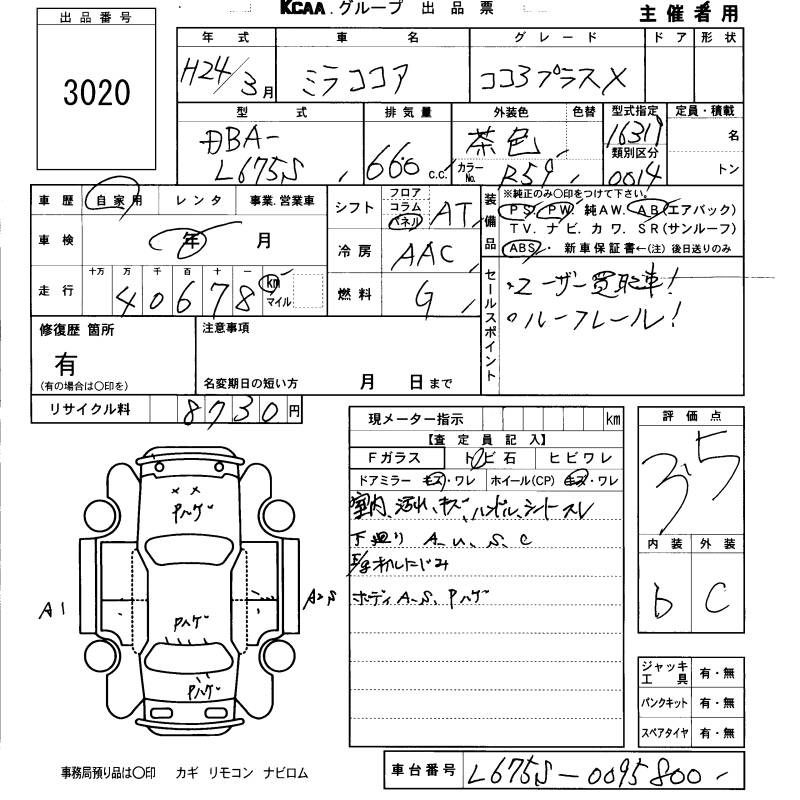 KCAA.グループ 出品票
主催者用
出品番号
3020
年式 車名 グレード ドア 形状
H24/3月 ミラココア ココア プラス X
型式 排気量 外装色 色替 型式指定 定員・積載
DBA-
L675S 660 c.c. 茶色 カラーNo. R59 16317 名
類別区分
0014 トン
車歴 自家用 レンタ 事業.営業車
シフト フロア コラム パネル AT
装備品 ※純正のみ〇印をつけて下さい。
PS. PW. 純AW. AB(エアバック)
TV. ナビ. カワ. SR(サンルーフ)
ABS・ 新車保証書←(注)後日送りのみ
車検 年 月
冷房 AAC
走行 十万 万 千 百 十 一 km マイル
40678
燃料 G
セールスポイント
ユーザー買取車!
ルーフレール!
修復歴 箇所
有
(有の場合は〇印を)
注意事項
名変期日の短い方 月 日まで
リサイクル料 8730円
現メーター指示 km
【査定員記入】
Fガラス トビ石 ヒビワレ
ドアミラー キズ・ワレ ホイール(CP) キズ・ワレ
室内、汚れ、キズ、ハンドル、シートスレ
下廻り A、U、S、C
ボディ A、S、Pハゲ
評価点
3.5
内装 外装
b C
××
Pハゲ
A1
A2S
Pハゲ
Pハゲ
ジャッキ工具 有・無
パンクキット 有・無
スペアタイヤ 有・無
事務局預り品は〇印 カギ リモコン ナビロム
車台番号 L675S-0095800